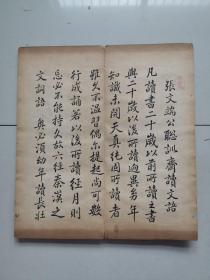 張文端公聰訓齋讀文語
凡讀書二十歲以前所讀之書
與二十歲以後所讀迥異多年
知識未開天真純固所讀者
雖久不溫習偶尔提起尚可數
行成誦若以後所讀經月則
忘必不能持久故六經秦漢之
文詞語奧必須幼年讀長壯